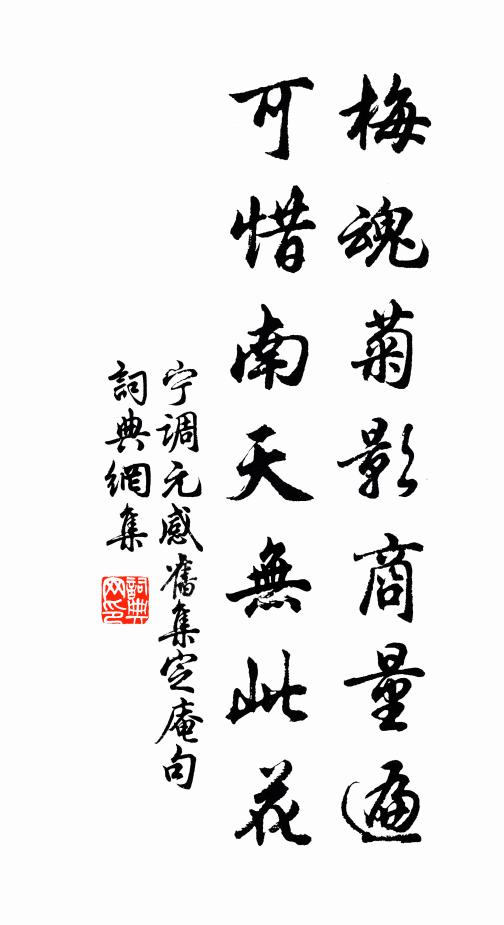 梅魂菊影商量遍
可惜南天無此花
宁调元感舊集定庵句
詞典網集
詞典